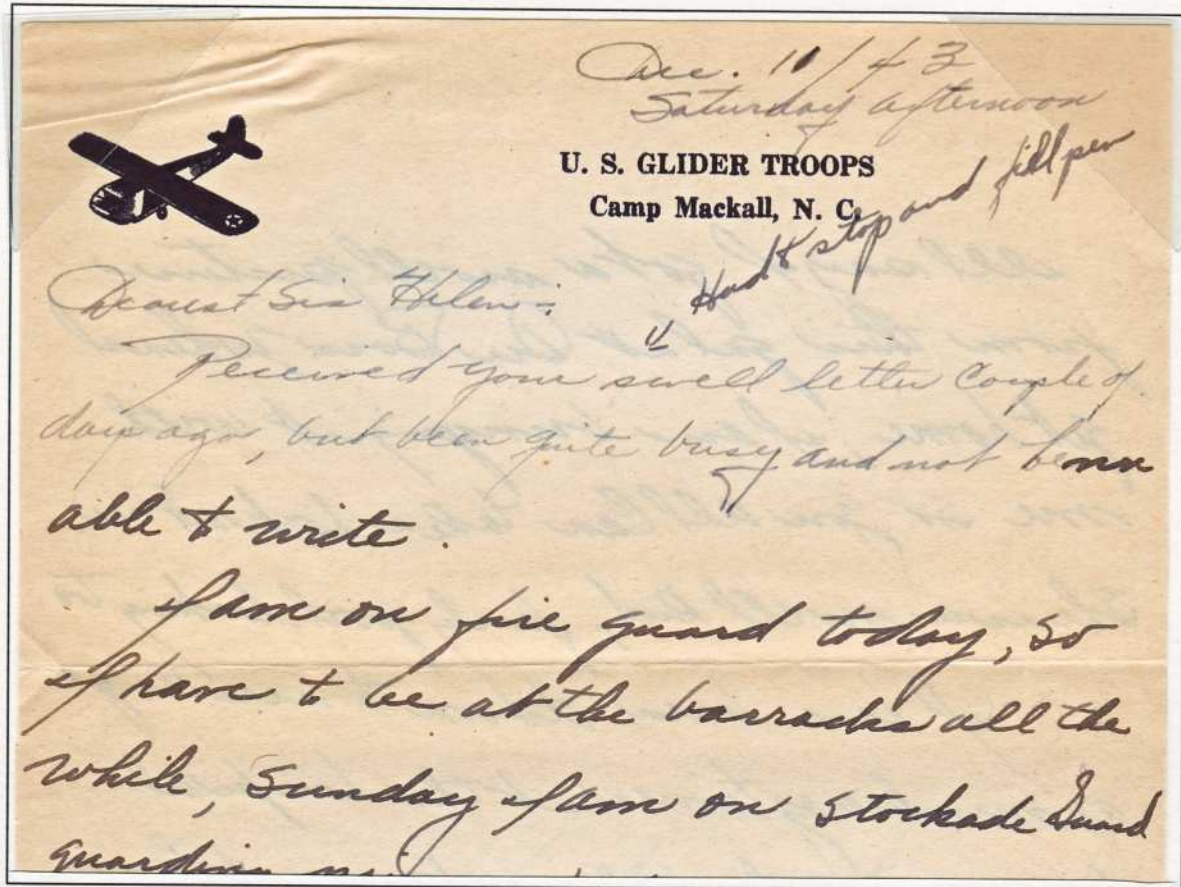 Dec. 11/43
Saturday afternoon
U. S. GLIDER TROOPS
Camp Mackall, N. C.
Had to stop and fill pen
Dearest Sis Helen:
Received your swell letter Couple of
days ago, but been quite busy and not been
able to write.
I am on fire guard today, so
I have to be at the barracks all the
while, Sunday I am on Stockade Guard
guarding